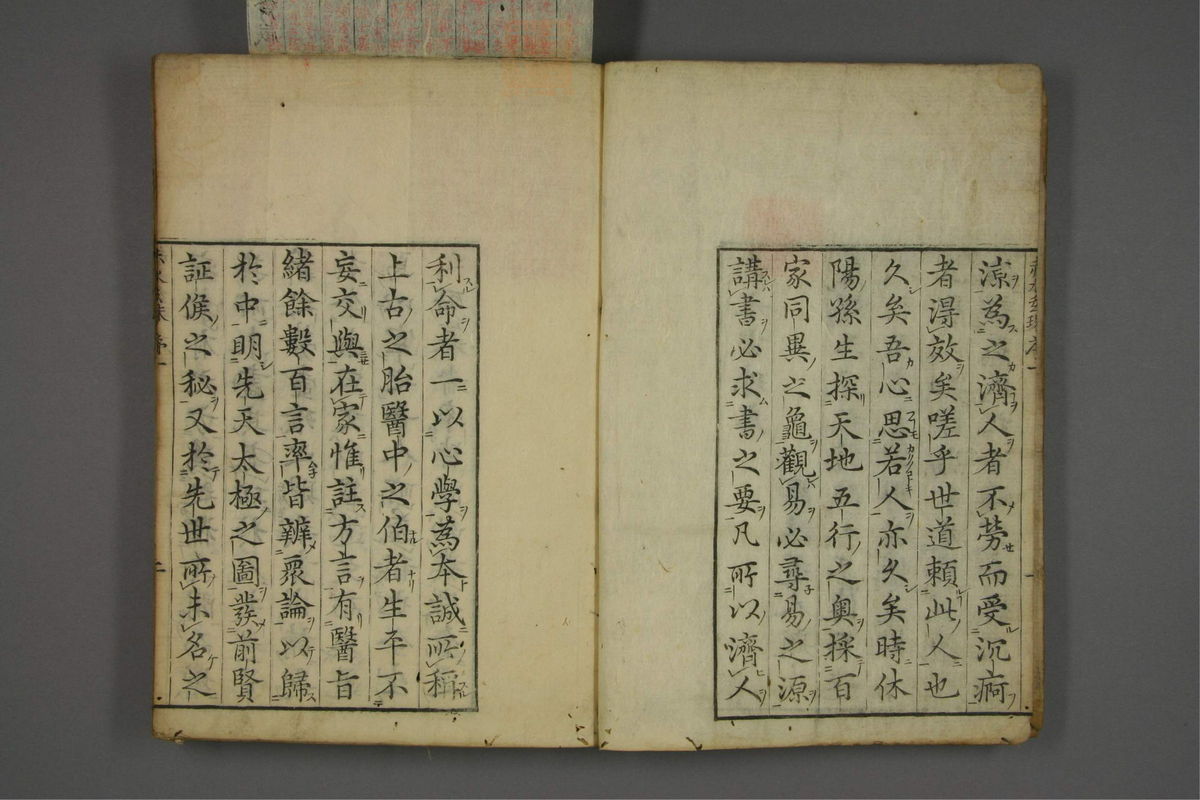 涼為之濟人者不勞而受沉痾
者得效矣嗟乎世道頼此人也
久矣吾心思若人亦久矣時休
陽孫生探天地五行之奥採百
家同異之龜觀易必尋易之源
講書必求書之要凡所以濟人
利命者一以心學為本誠所稱
上古之胎醫中之伯者生平不
妄交與在家惟註方言有醫旨
緒餘數百言率皆辨眾論以歸
於中明先天太極之圖發前賢
証候之秘又於先世所未名之